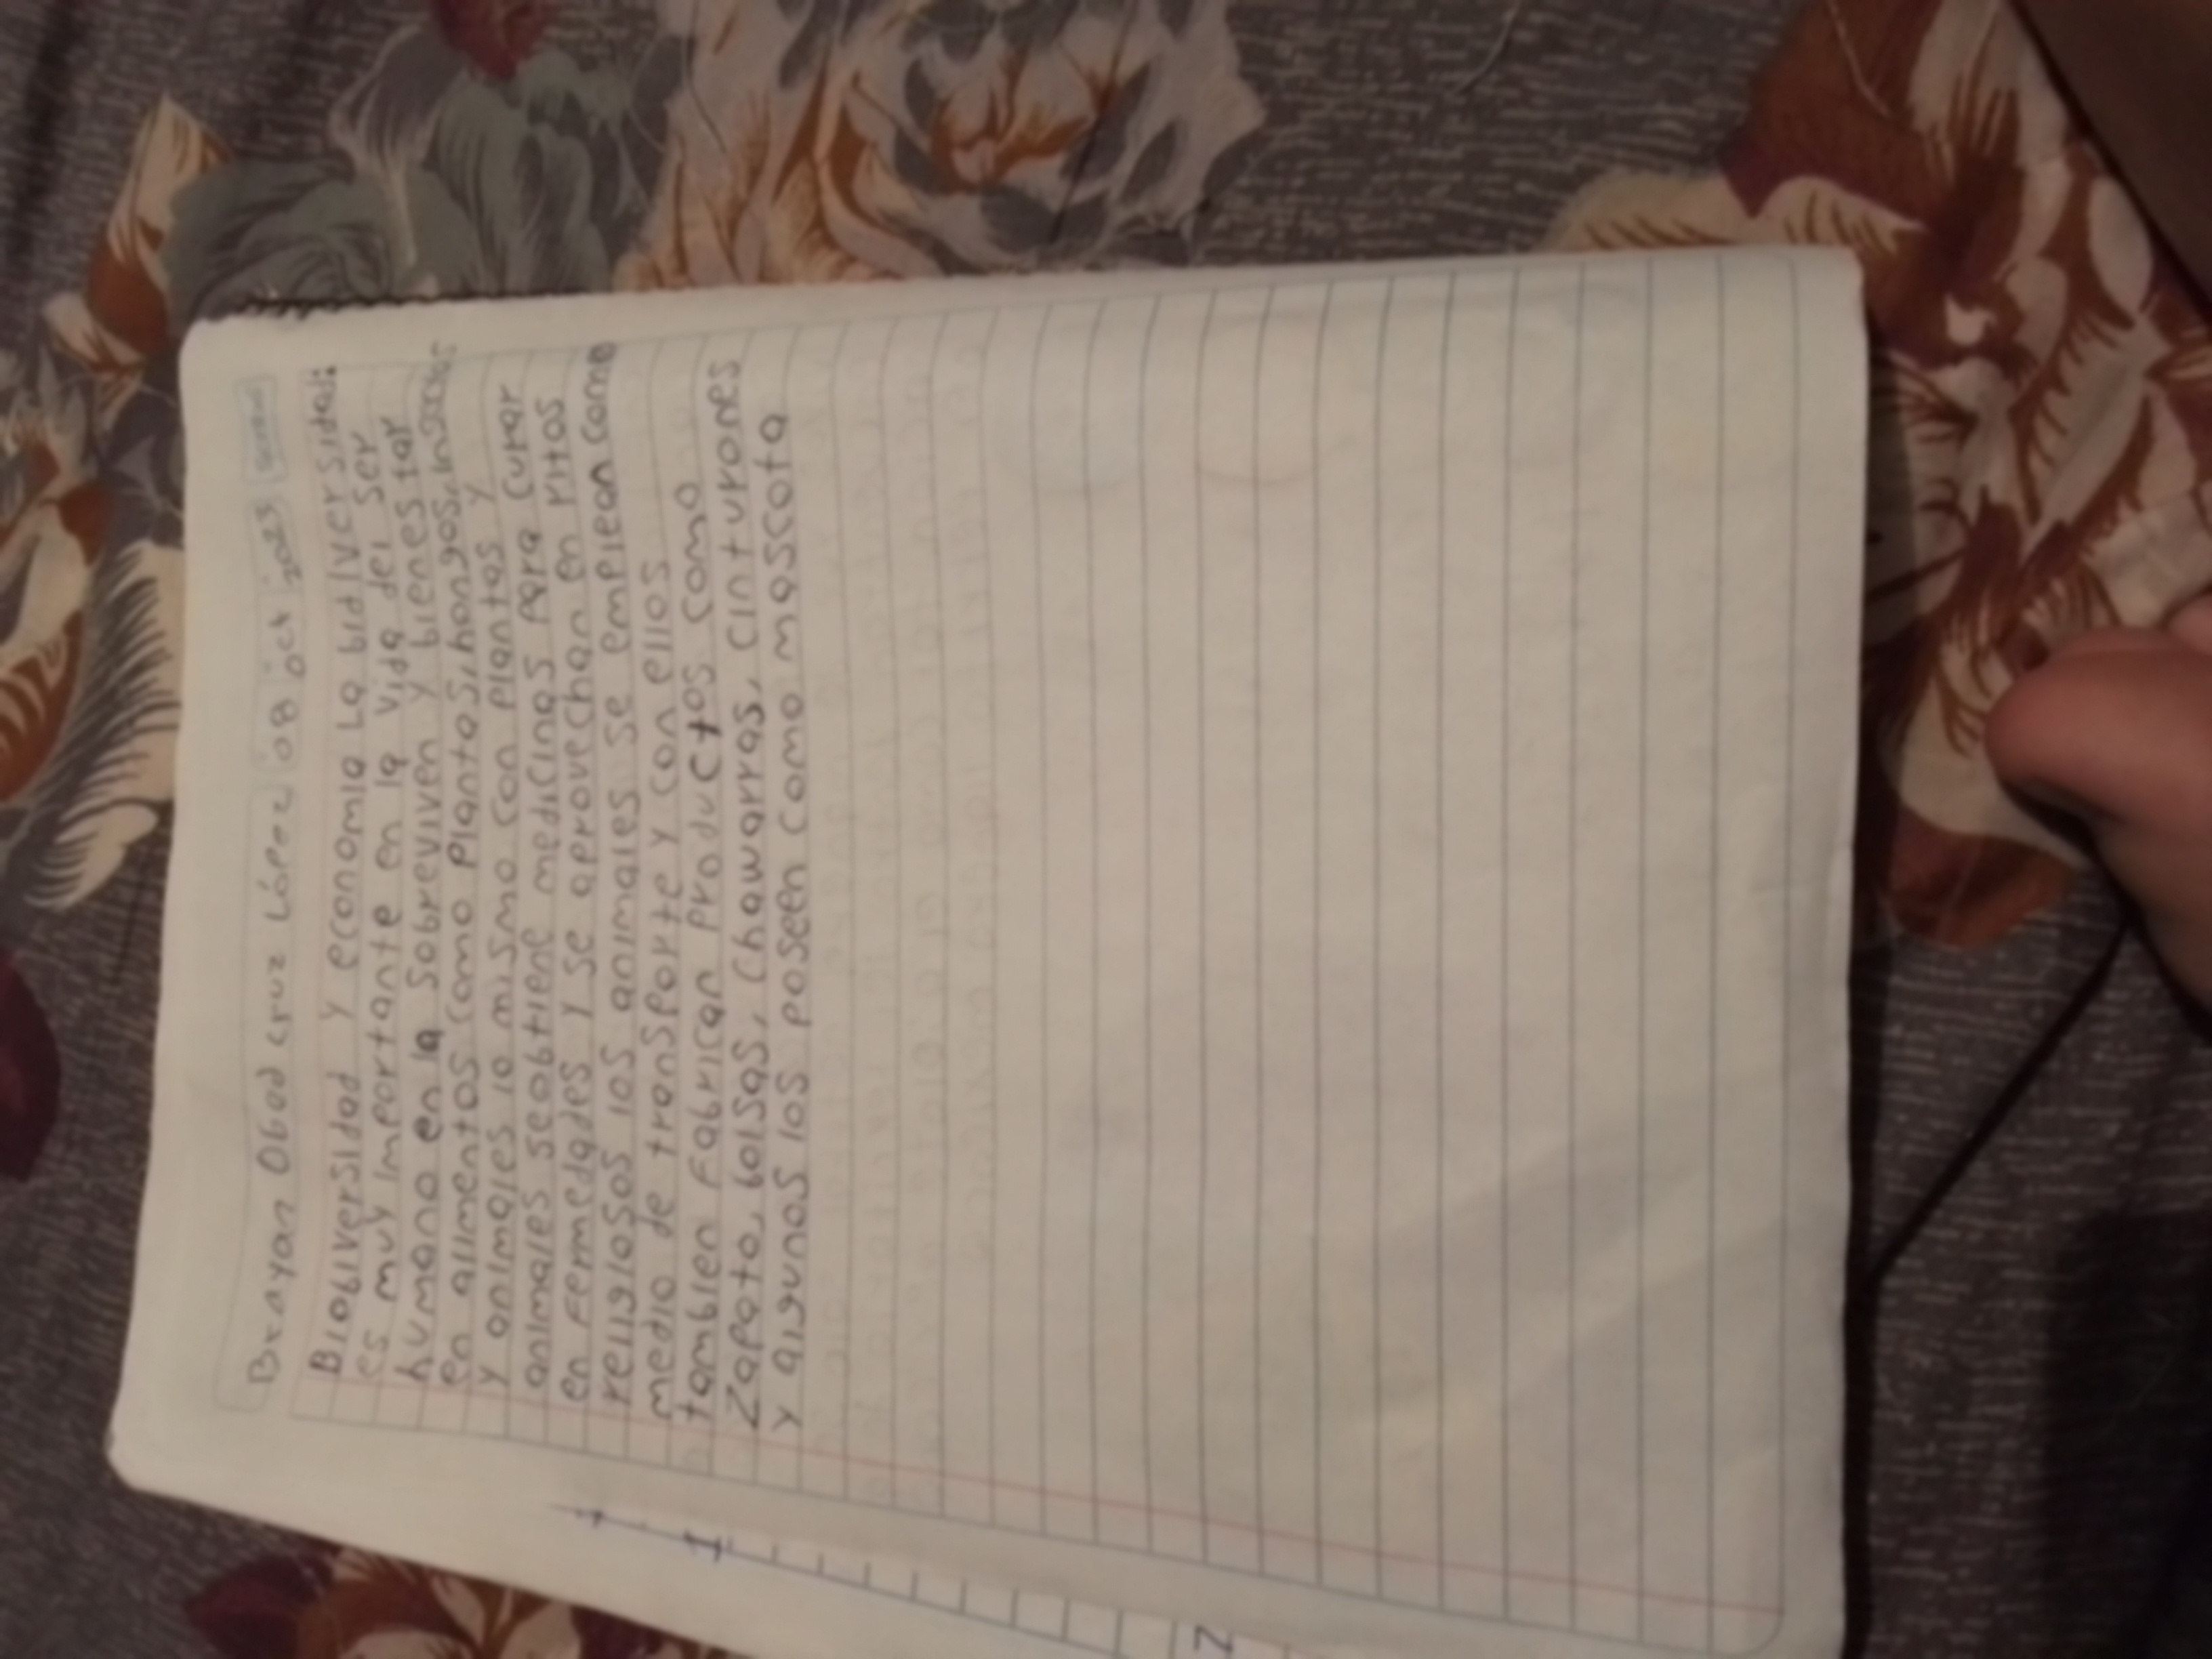 Brayan Obed cruz López 08 oct 2023 Scribe
Biobiversidad y economia La bidiversidad:
es muy importante en la vida del ser
humano en la sobreviven y bienestar
en alimentos como plantas, hongos, insectos
y animales lo mismo con plantas y
animales seobtiene medicinas para curar
en fermedades y se aprovechan en ritos
religiosos los animales se emplean como
medio de transporte y con ellos
tambien fabrican productos como
zapato, bolsas, chawarras, cinturones
y algunos los poseen como mascota
1
2